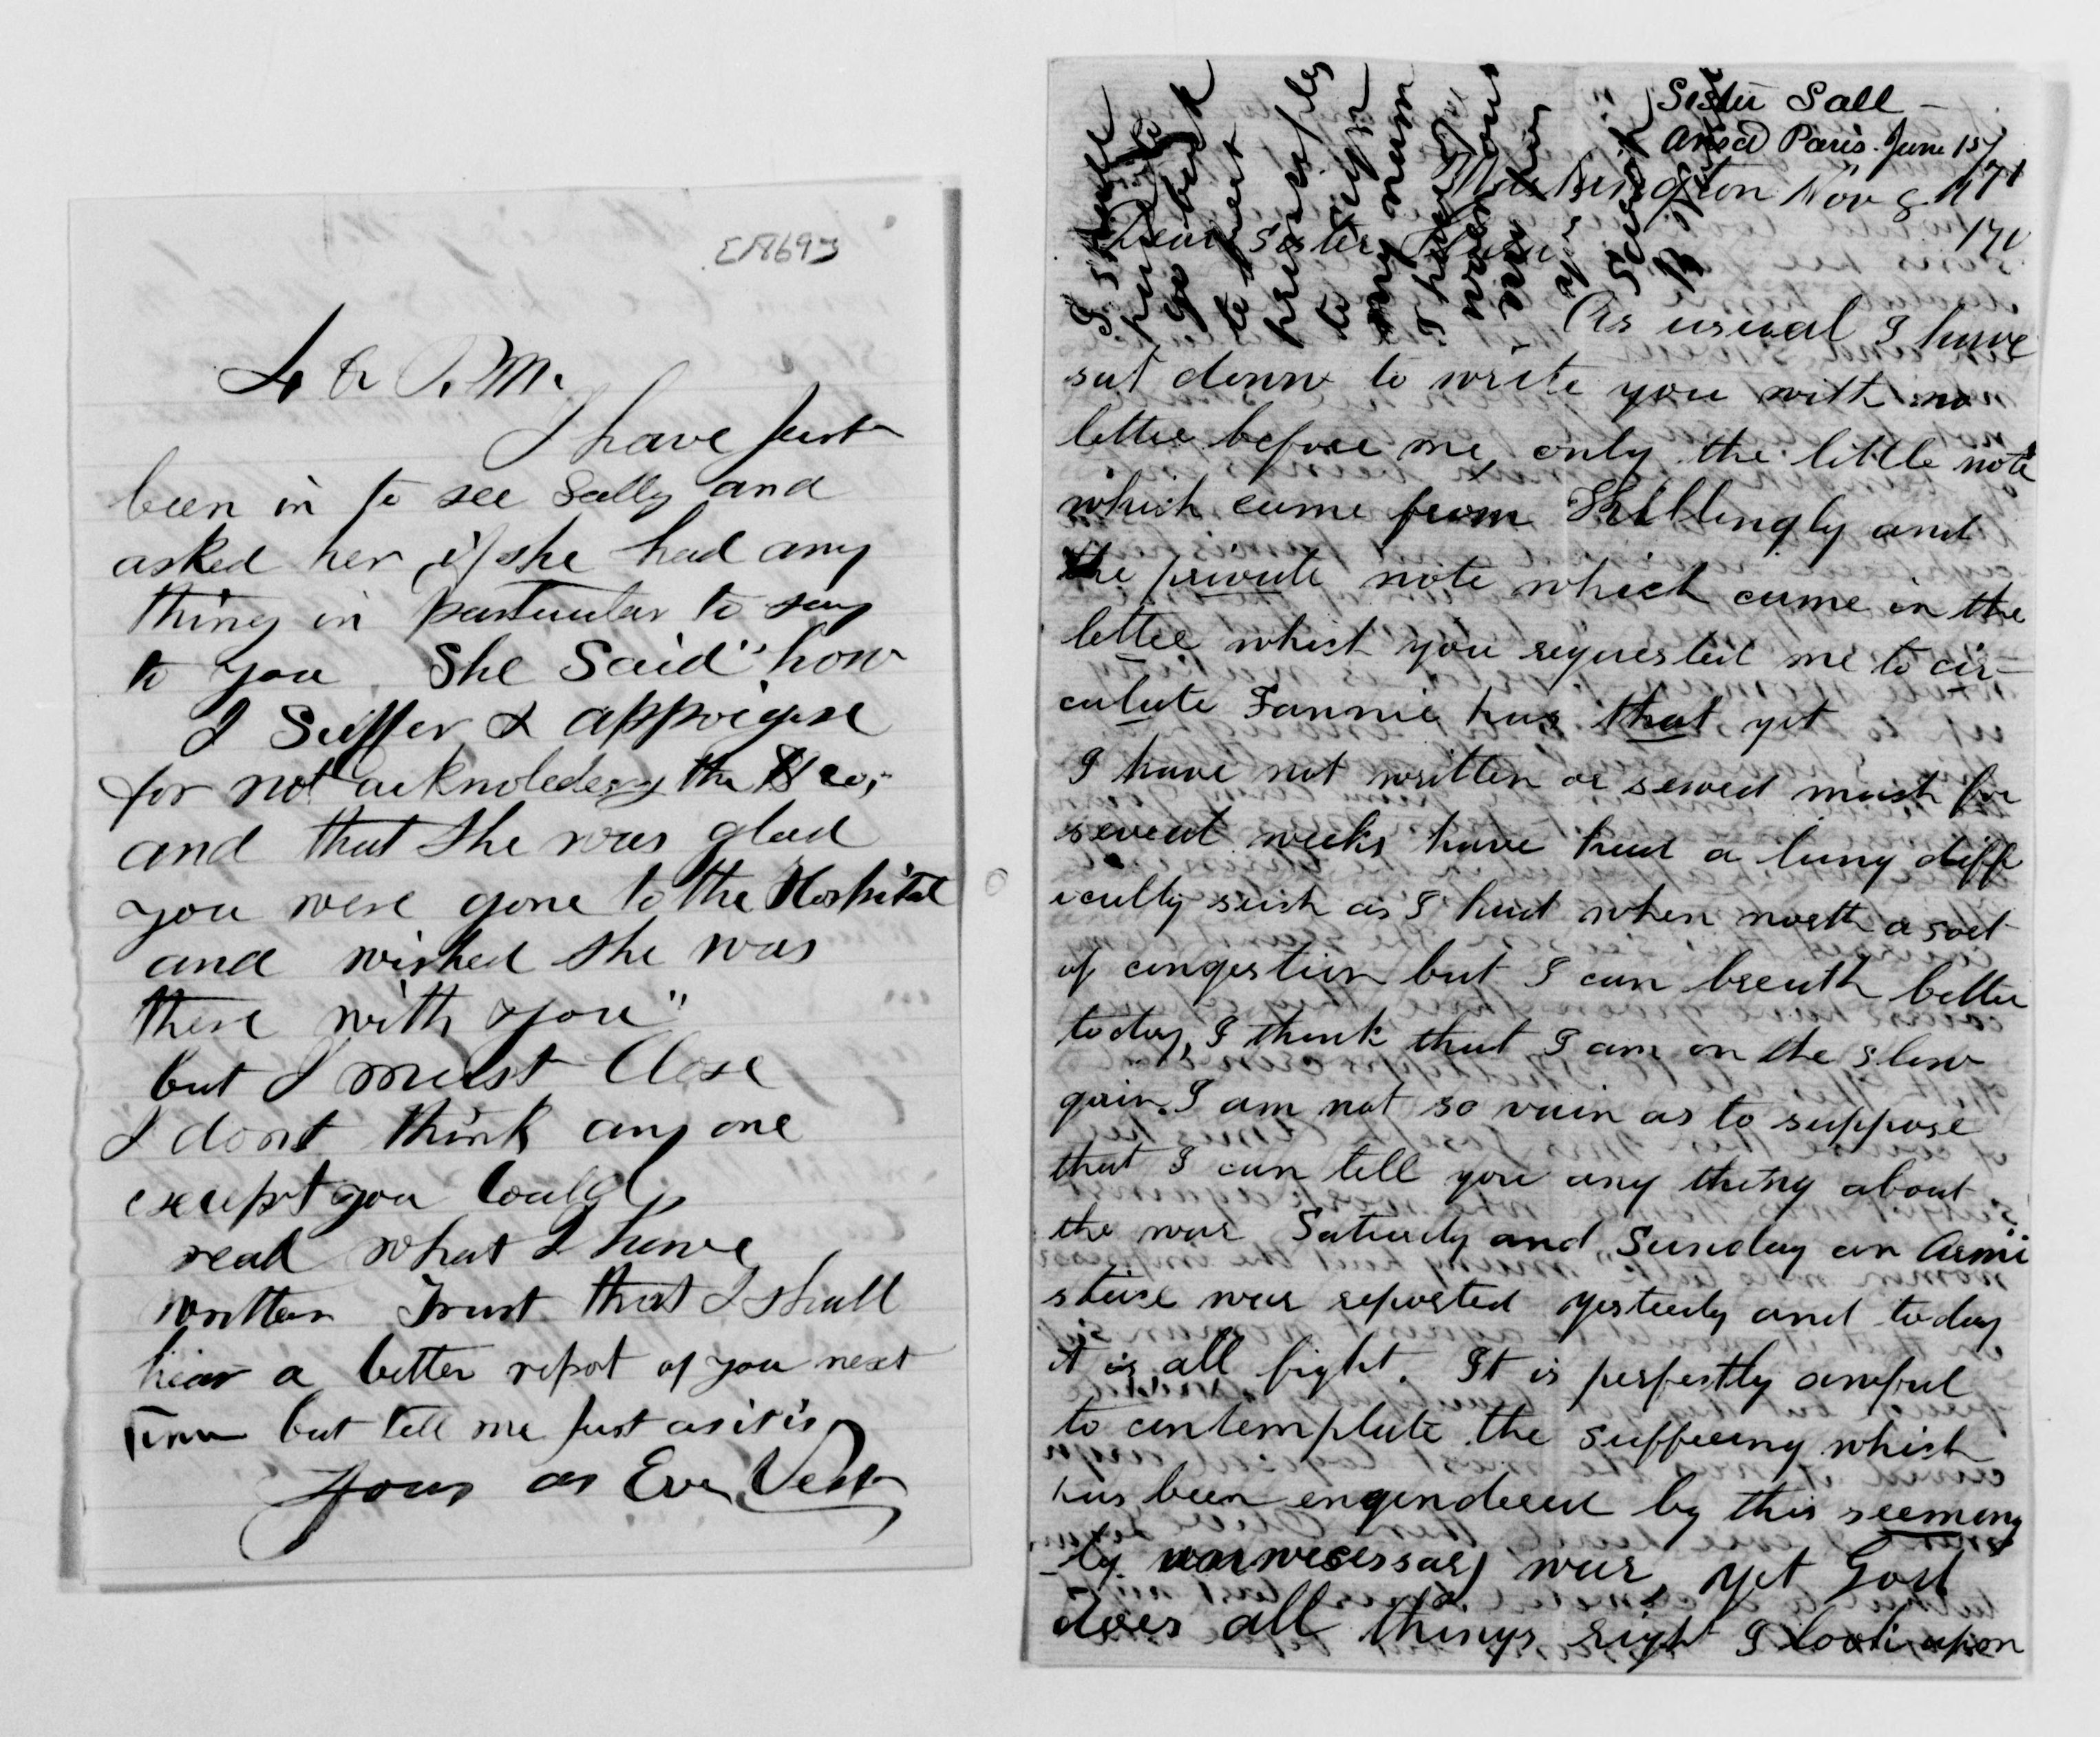 [1869]
4 P.M.
I have just
been in to see Sally and
asked her, if she had any
thing in particular to say
to you. She Said "how
I Suffer & appoigise
for not acknoledgeg the
and that she was glad
you were gone to the Hospital
and wished she was
there with you"
but I must Close
I dont think any one
except you Could
read what I have
written Trust that I shall
hear a better repot of you next
time but tell me just as it is
Yours as Ever Vest
Sister Sall -
Ansd Paris. June 15/
71
Washington Nov 8th
170
Dear Sister
As usual I have
sat down to write you with no
letter before me, only the little note
which came from Killingly and
the private note which came in the
letter which you requested me to cir-
culate Fannie has that yet
I have not written or sewed much for
several weeks have had a lung diff
iculty such as I had when north a sort
of congestion but I can breath better
today, I think that I am on the slow
gain, I am not so vain as to suppose
that I can tell you any thing about
the war Saturdy and Sunday an Armi
stice was reported yesterdy and today
it is all fight. It is perfectly aweful
to contemplate the suffering which
has been engendered by this seeming
-ly unnecessary war, yet God
does all things right I look upon
I
go back
to
to
my
I have
my
your
Sister